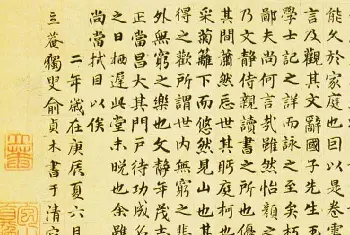 能久于家庭也回以是卷
言及觀其文辭國子先生
學士記之詳而詠之至矣
鄙夫尚何言哉雖然怡顔之
乃文靜侍親讀書之所也
其間蕭然忘世其眄庭柯也
采菊籬下而悠然見山也
得之歡所謂世内無窮之悲
外無窮之樂也文靜年茂
正當昌大其門戶待功成
之日栖遲此堂未晚也余雖
尚當拭目以俟
二年歲在庚辰夏六月
立菴獨叟俞貞木書于清